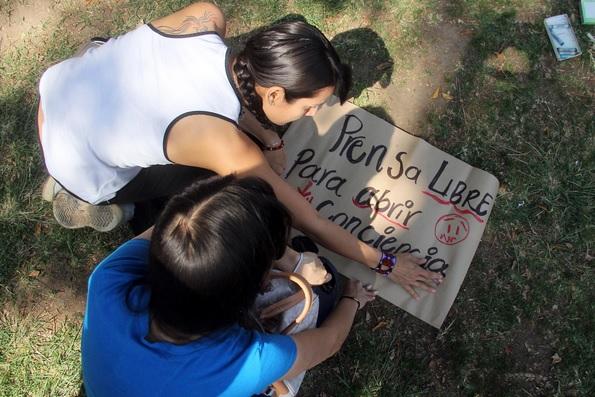 Prensa LIBRE
Para abrir
la Conciencia